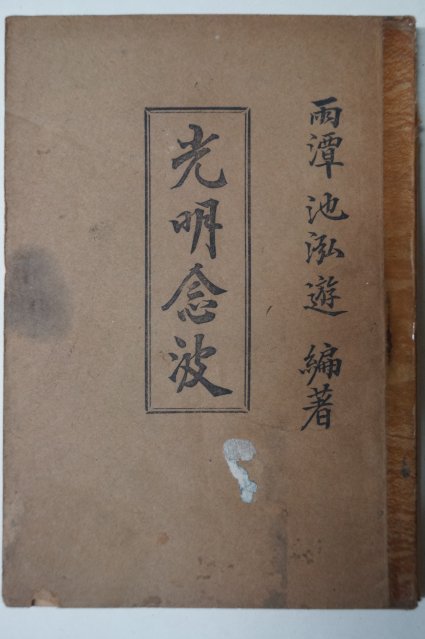 雨潭 池泓遊 編著
光明念波